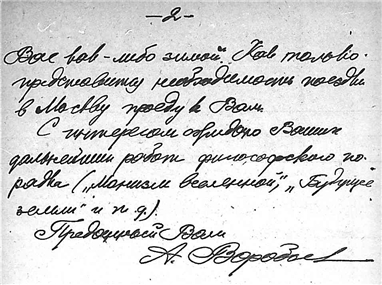 —2—
Вас как-либо зимой. Как только
представится необходимость поездки
в Москву проеду к Вам.
С интересом ожидаю Ваших
дальнейших работ философского по-
рядка („Монизм вселенной", „Будущее
земли" и п д.).
Преданный Вам
А. Воробьев